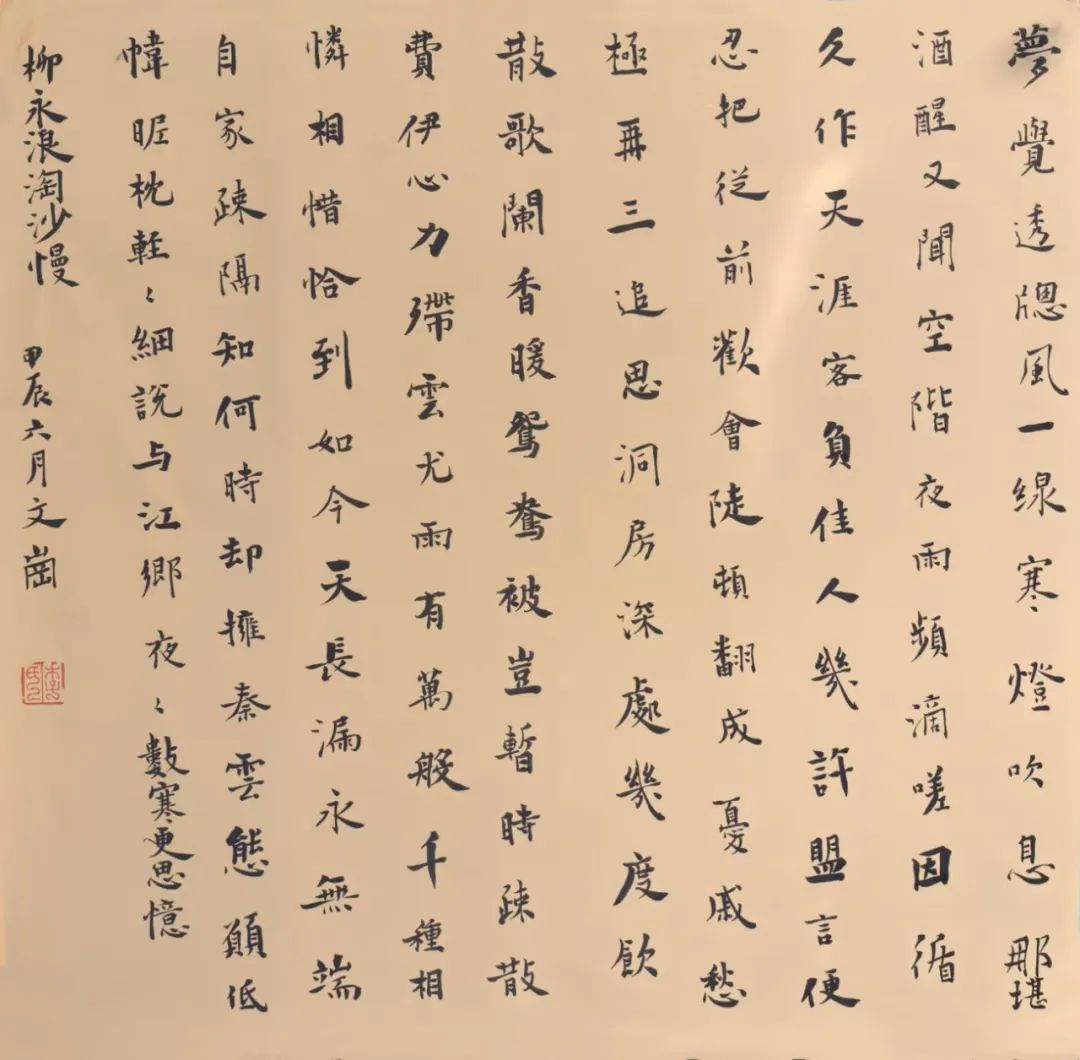 夢覺透牕風一線寒燈吹息那堪
酒醒又聞空階夜雨頻滴嗟因循
久作天涯客負佳人幾許盟言便
忍把従前歡會陡頓翻成憂戚愁
極再三追思洞房深處幾度飲
散歌闌香暖鴛鴦被豈暫時疎散
費伊心力殢雲尤雨有萬般千種相
憐相惜恰到如今天長漏永無端
自家疎隔知何時却擁秦雲態願低
幃昵枕輕〻細說与江鄉夜〻數寒更思憶
柳永浪淘沙慢 甲辰六月文崗